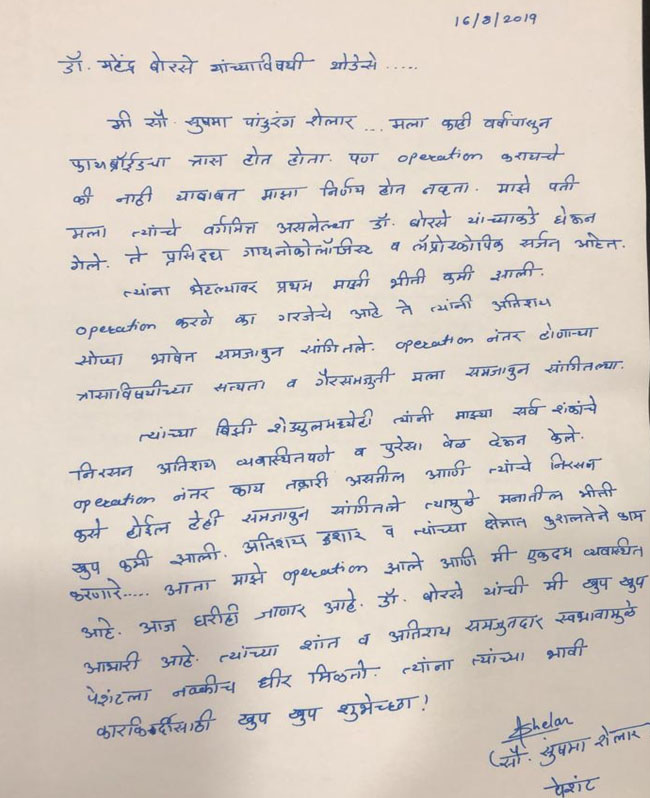 16/8/2019
डॉ. महेंद्र बोरसे यांच्याविषयी थोडेसे .....
मी सौ. सुषमा पांडुरंग शेलार ... मला काही वर्षांपासून
फायब्रॉईडचा त्रास होत होता. पण operation करायचे
की नाही याबाबत माझा निर्णय होत नव्हता. माझे पती
मला त्यांचे वर्गमित्र असलेल्या डॉ. बोरसे यांच्याकडे घेऊन
गेले. ते प्रसिद्ध गायनोकोलॉजिस्ट व लॅप्रोस्कोपिक सर्जन आहेत.
त्यांना भेटल्यावर प्रथम माझी भीती कमी झाली.
operation करणे का गरजेचे आहे ते त्यांनी अतिशय
सोप्या भाषेत समजावून सांगितले. operation नंतर होणाऱ्या
त्रासाविषयीच्या सत्यता व गैरसमजुती मला समजावून सांगितल्या.
त्यांच्या बिझी शेड्युलमध्येही त्यांनी माझ्या सर्व शंकांचे
निरसन अतिशय व्यवस्थितपणे व पुरेसा वेळ देऊन केले.
operation नंतर काय तक्रारी असतील आणि त्यांचे निरसन
कसे होईल हेही समजावून सांगितले त्यामुळे मनातील भीती
खुप कमी झाली. अतिशय हुशार व त्यांच्या क्षेत्रात कुशलतेने काम
करणारे..... आता माझे operation झाले आणि मी एकदम व्यवस्थित
आहे. आज घरीही जाणार आहे. डॉ. बोरसे यांची मी खुप खुप
आभारी आहे. त्यांच्या शांत व अतिशय समजुतदार स्वभावामुळे
पेशंटला नक्कीच धीर मिळतो. त्यांना त्यांच्या भावी
कारकिर्दीसाठी खुप खुप शुभेच्छा!
Shelar
(सौ. सुषमा शेलार
पेशंट